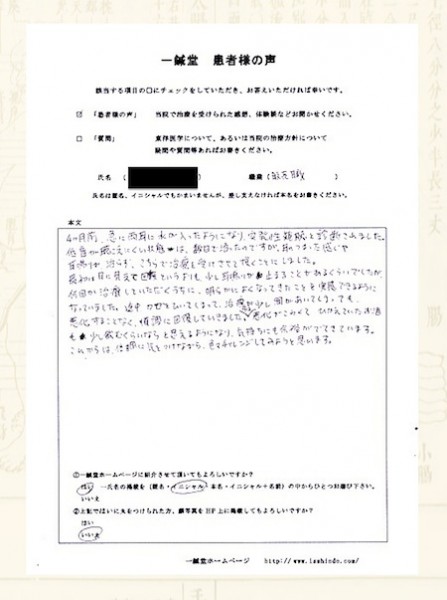 一鍼堂 患者様の声
該当する項目の□にチェックをしていただき、お答えいただければ幸いです。
☑ 「患者様の声」 当院で治療を受けられた感想、体験談などお聞かせください。
□ 「質問」 東洋医学について、あるいは当院の治療方針について
疑問や質問等あればお書きください。
氏名 ( 職業 ( )
氏名は匿名、イニシャルでもかまいませんが、差し支えなければ本名をお書きください。
本文
4ヶ月前、急に両耳に水が入ったようになり、突発性難聴と診断されました。
低音が聞こえにくい状態は、数日で治ったのですが、耳のつまった感じや
は治らず、こちらで治療を受けさせて頂くことにしました。
最初は目に見えて回復というよりも、少し耳鳴りが止まることもあるくらいでしたが、
何回か治療していただくうちに、明らかに良くなってきたことを実感できるように
なっていました。途中 かぜをひいてしまって、治療が少し間があいてしまっても、
悪化することなく、順調に回復していきました。悪化がこわくて ひかえていたお酒
も少し飲むくらいならと思えるようになり、気持ちにも余裕がでてきています。
これからは、体調に気をつけながら、色々チャレンジしてみようと思います。
①一鍼堂ホームページに紹介させて頂いてもよろしいですか?
はい —氏名の掲載を (匿名・イニシャル・本名・イニシャル+名前) の中からひとつお選び下さい。
いいえ
②上記ではいに丸をつけられた方、顔写真をHP上に掲載してもよろしいですか?
はい
いいえ
一鍼堂ホームページ http://www.isshindo.com/